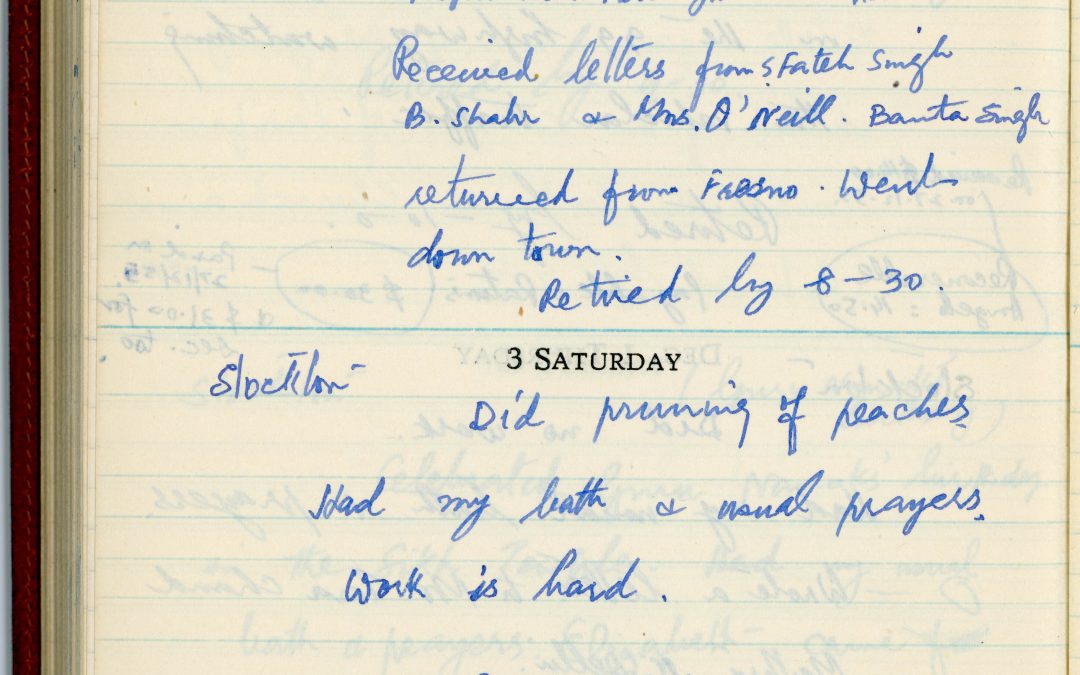 Received letters from S Fateh Singh
B. Shahr & Mrs. O'Neill. Banta Singh
returned from Fresno. Went
down town.
Retired by 8-30.
3 SATURDAY
Stockton
Did pruning of peaches.
Had my bath & usual prayers.
Work is hard.